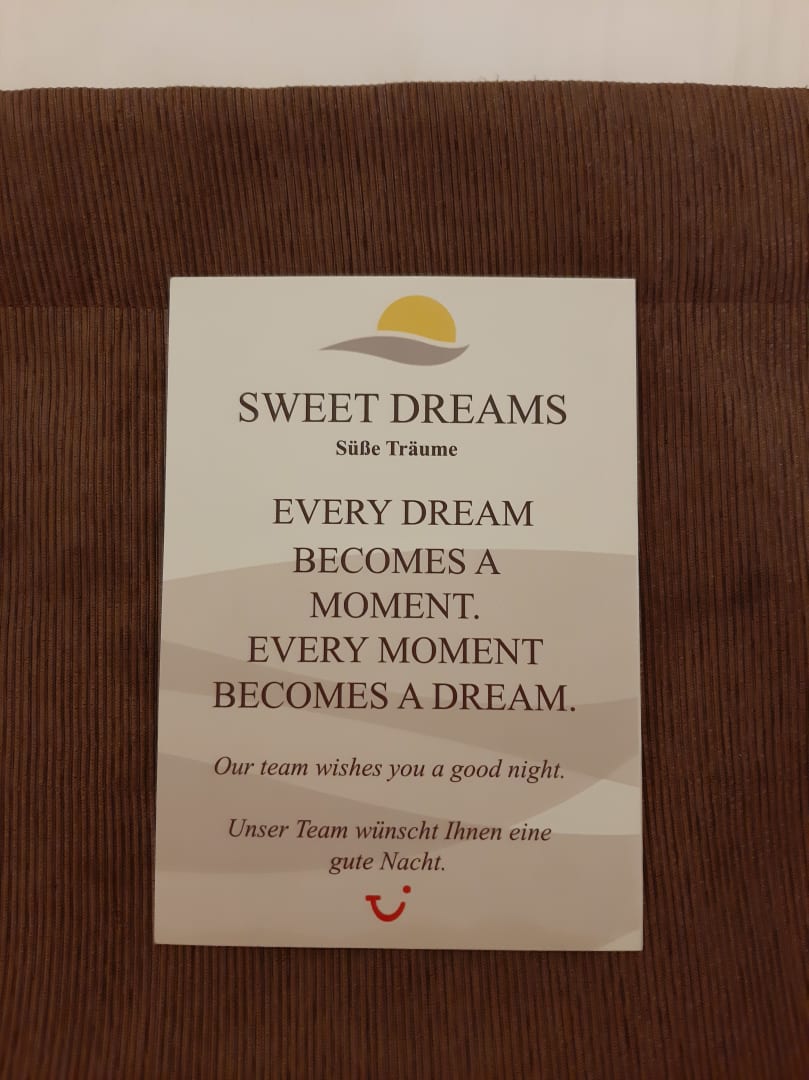 SWEET DREAMS
Süße Träume
EVERY DREAM
BECOMES A
MOMENT.
EVERY MOMENT
BECOMES A DREAM.
Our team wishes you a good night.
Unser Team wünscht Ihnen eine
gute Nacht.